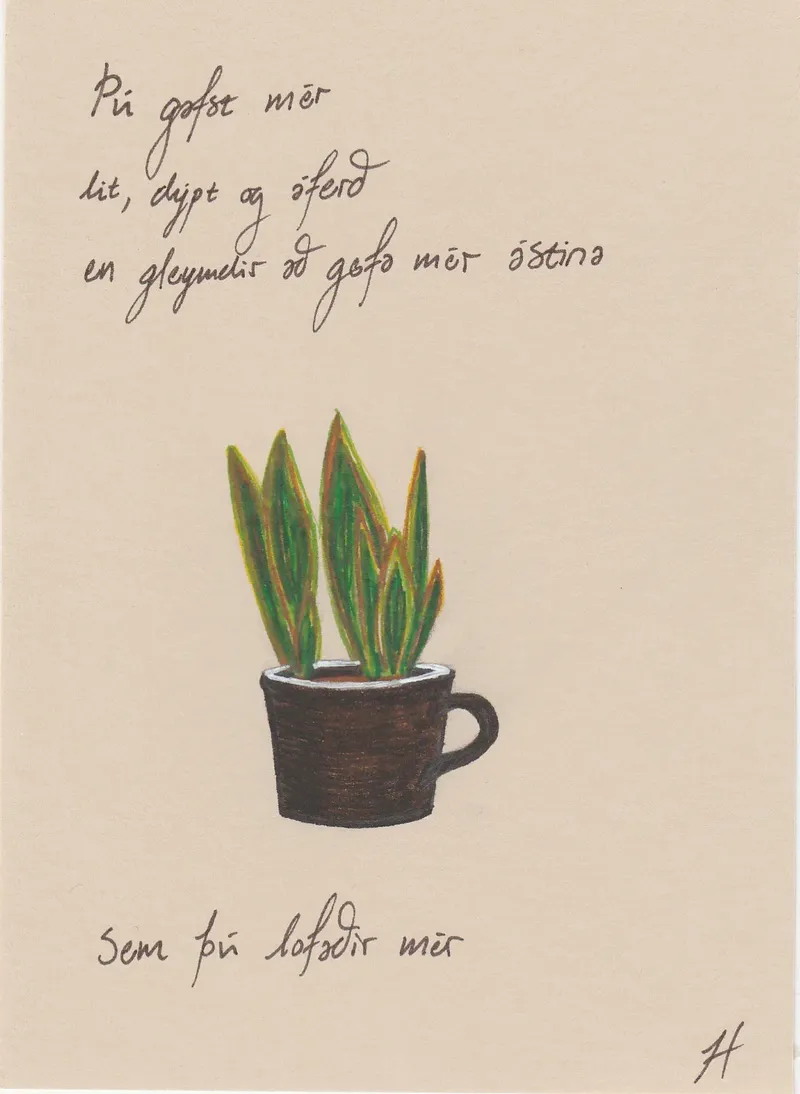 Þú gafst mér
lit, dýpt og áferð
en gleymdir að gefa mér ástina
Sem þú lofaðir mér
H